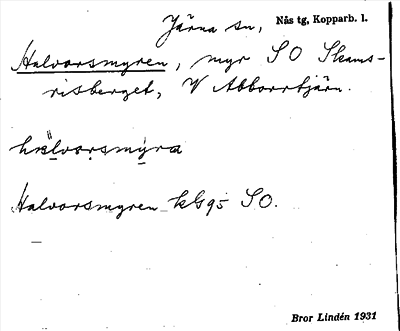 Järna sn, Nås tg, Kopparb. l.
Halvorsmyren, myr SO Skams-
risberget, V Abborrtjärn.
Halvorsmyren kbg95 SO.
Bror Lindén 1931